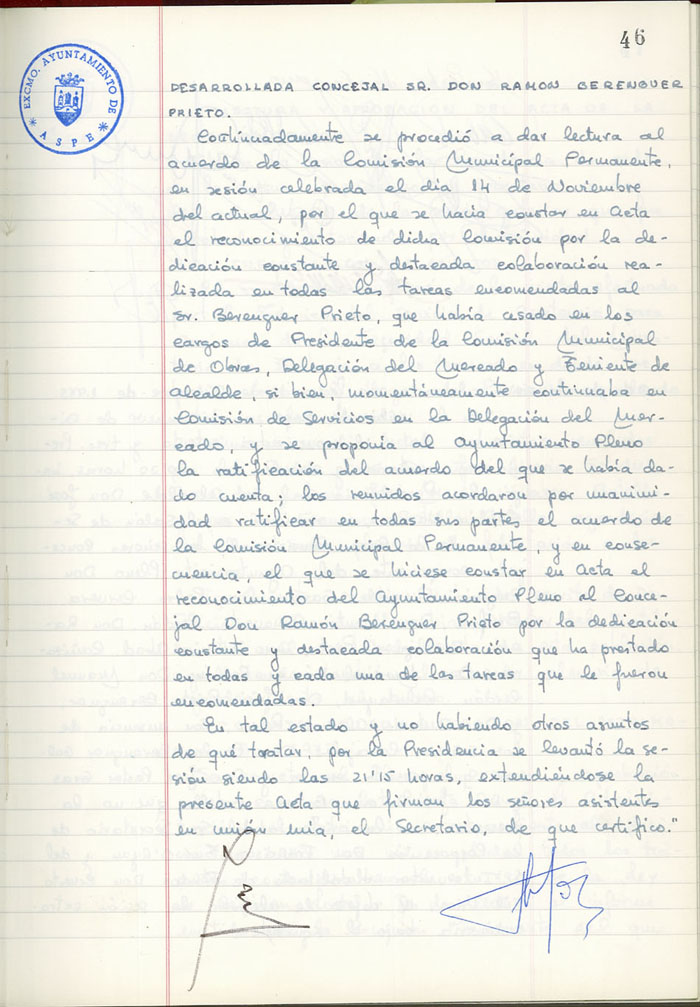 46
EXCMO. AYUNTAMIENTO DE
* ASPE *
DESARROLLADA CONCEJAL SR. DON RAMON BERENGUER
PRIETO.
Continuadamente se procedió a dar lectura al
acuerdo de la Comisión Municipal Permanente,
en sesión celebrada el dia 14 de Noviembre
del actual, por el que se hacia constar en Acta
el reconocimiento de dicha Comisión por la de-
dicación constante y destacada colaboración rea-
lizada en todas las tareas encomendadas al
Sr. Berenguer Prieto, que había cesado en los
cargos de Presidente de la Comisión Municipal
de Obras, Delegación del Mercado y Teniente de
Alcalde, si bien, momentáneamente continuaba en
Comisión de Servicios en la Delegación del Mer-
cado, y se proponía al Ayuntamiento Pleno
la ratificación del acuerdo del que se había da-
do cuenta; los reunidos acordaron por unanimi-
dad ratificar en todas sus partes el acuerdo de
la Comisión Municipal Permanente, y en conse-
cuencia, el que se hiciese constar en Acta el
reconocimiento del Ayuntamiento Pleno al Conce-
jal Don Ramón Berenguer Prieto por la dedicación
constante y destacada colaboración que ha prestado
en todas y cada una de las tareas que le fueron
encomendadas.
En tal estado y no habiendo otros asuntos
de qué tratar, por la Presidencia se levantó la se-
sión siendo las 21'15 horas, extendiéndose la
presente Acta que firman los señores asistentes
en unión mia, el Secretario, de que certifico."